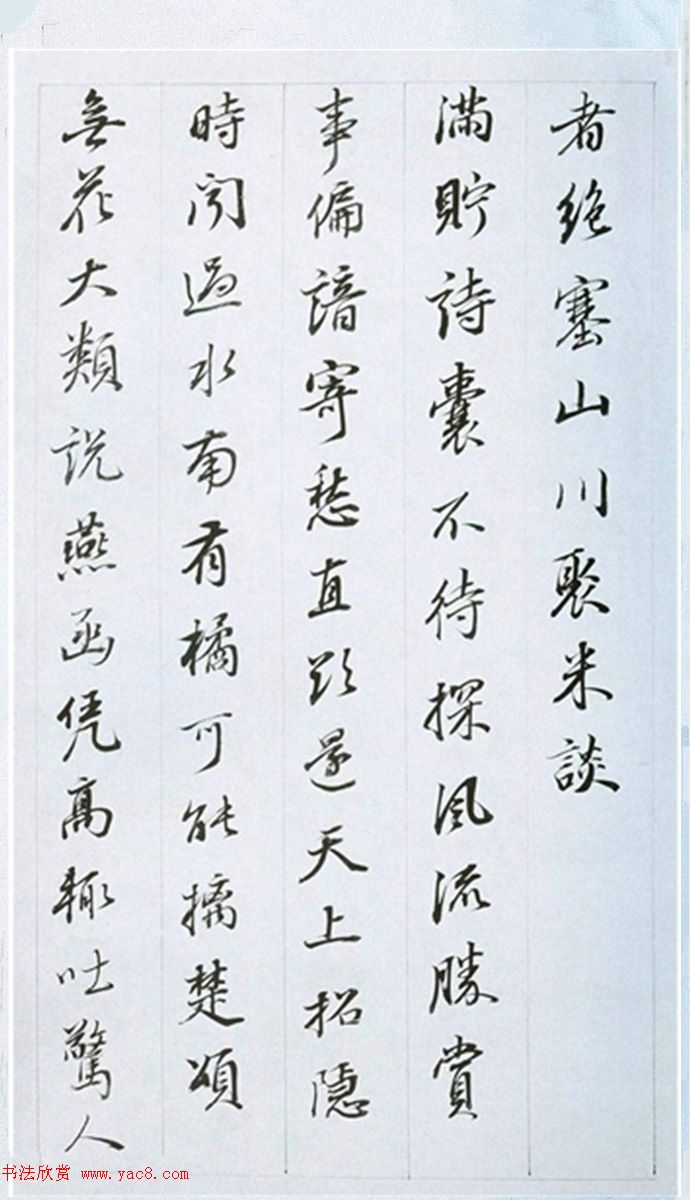 者絶塞山川聚米談
滿貯詩囊不待探風流勝賞
事偏諳寄愁直欲還天上招隱
時聞過水南有橘可能摘楚頌
無花大類説燕函凭高輒吐驚人
书法欣赏 www.yac8.com